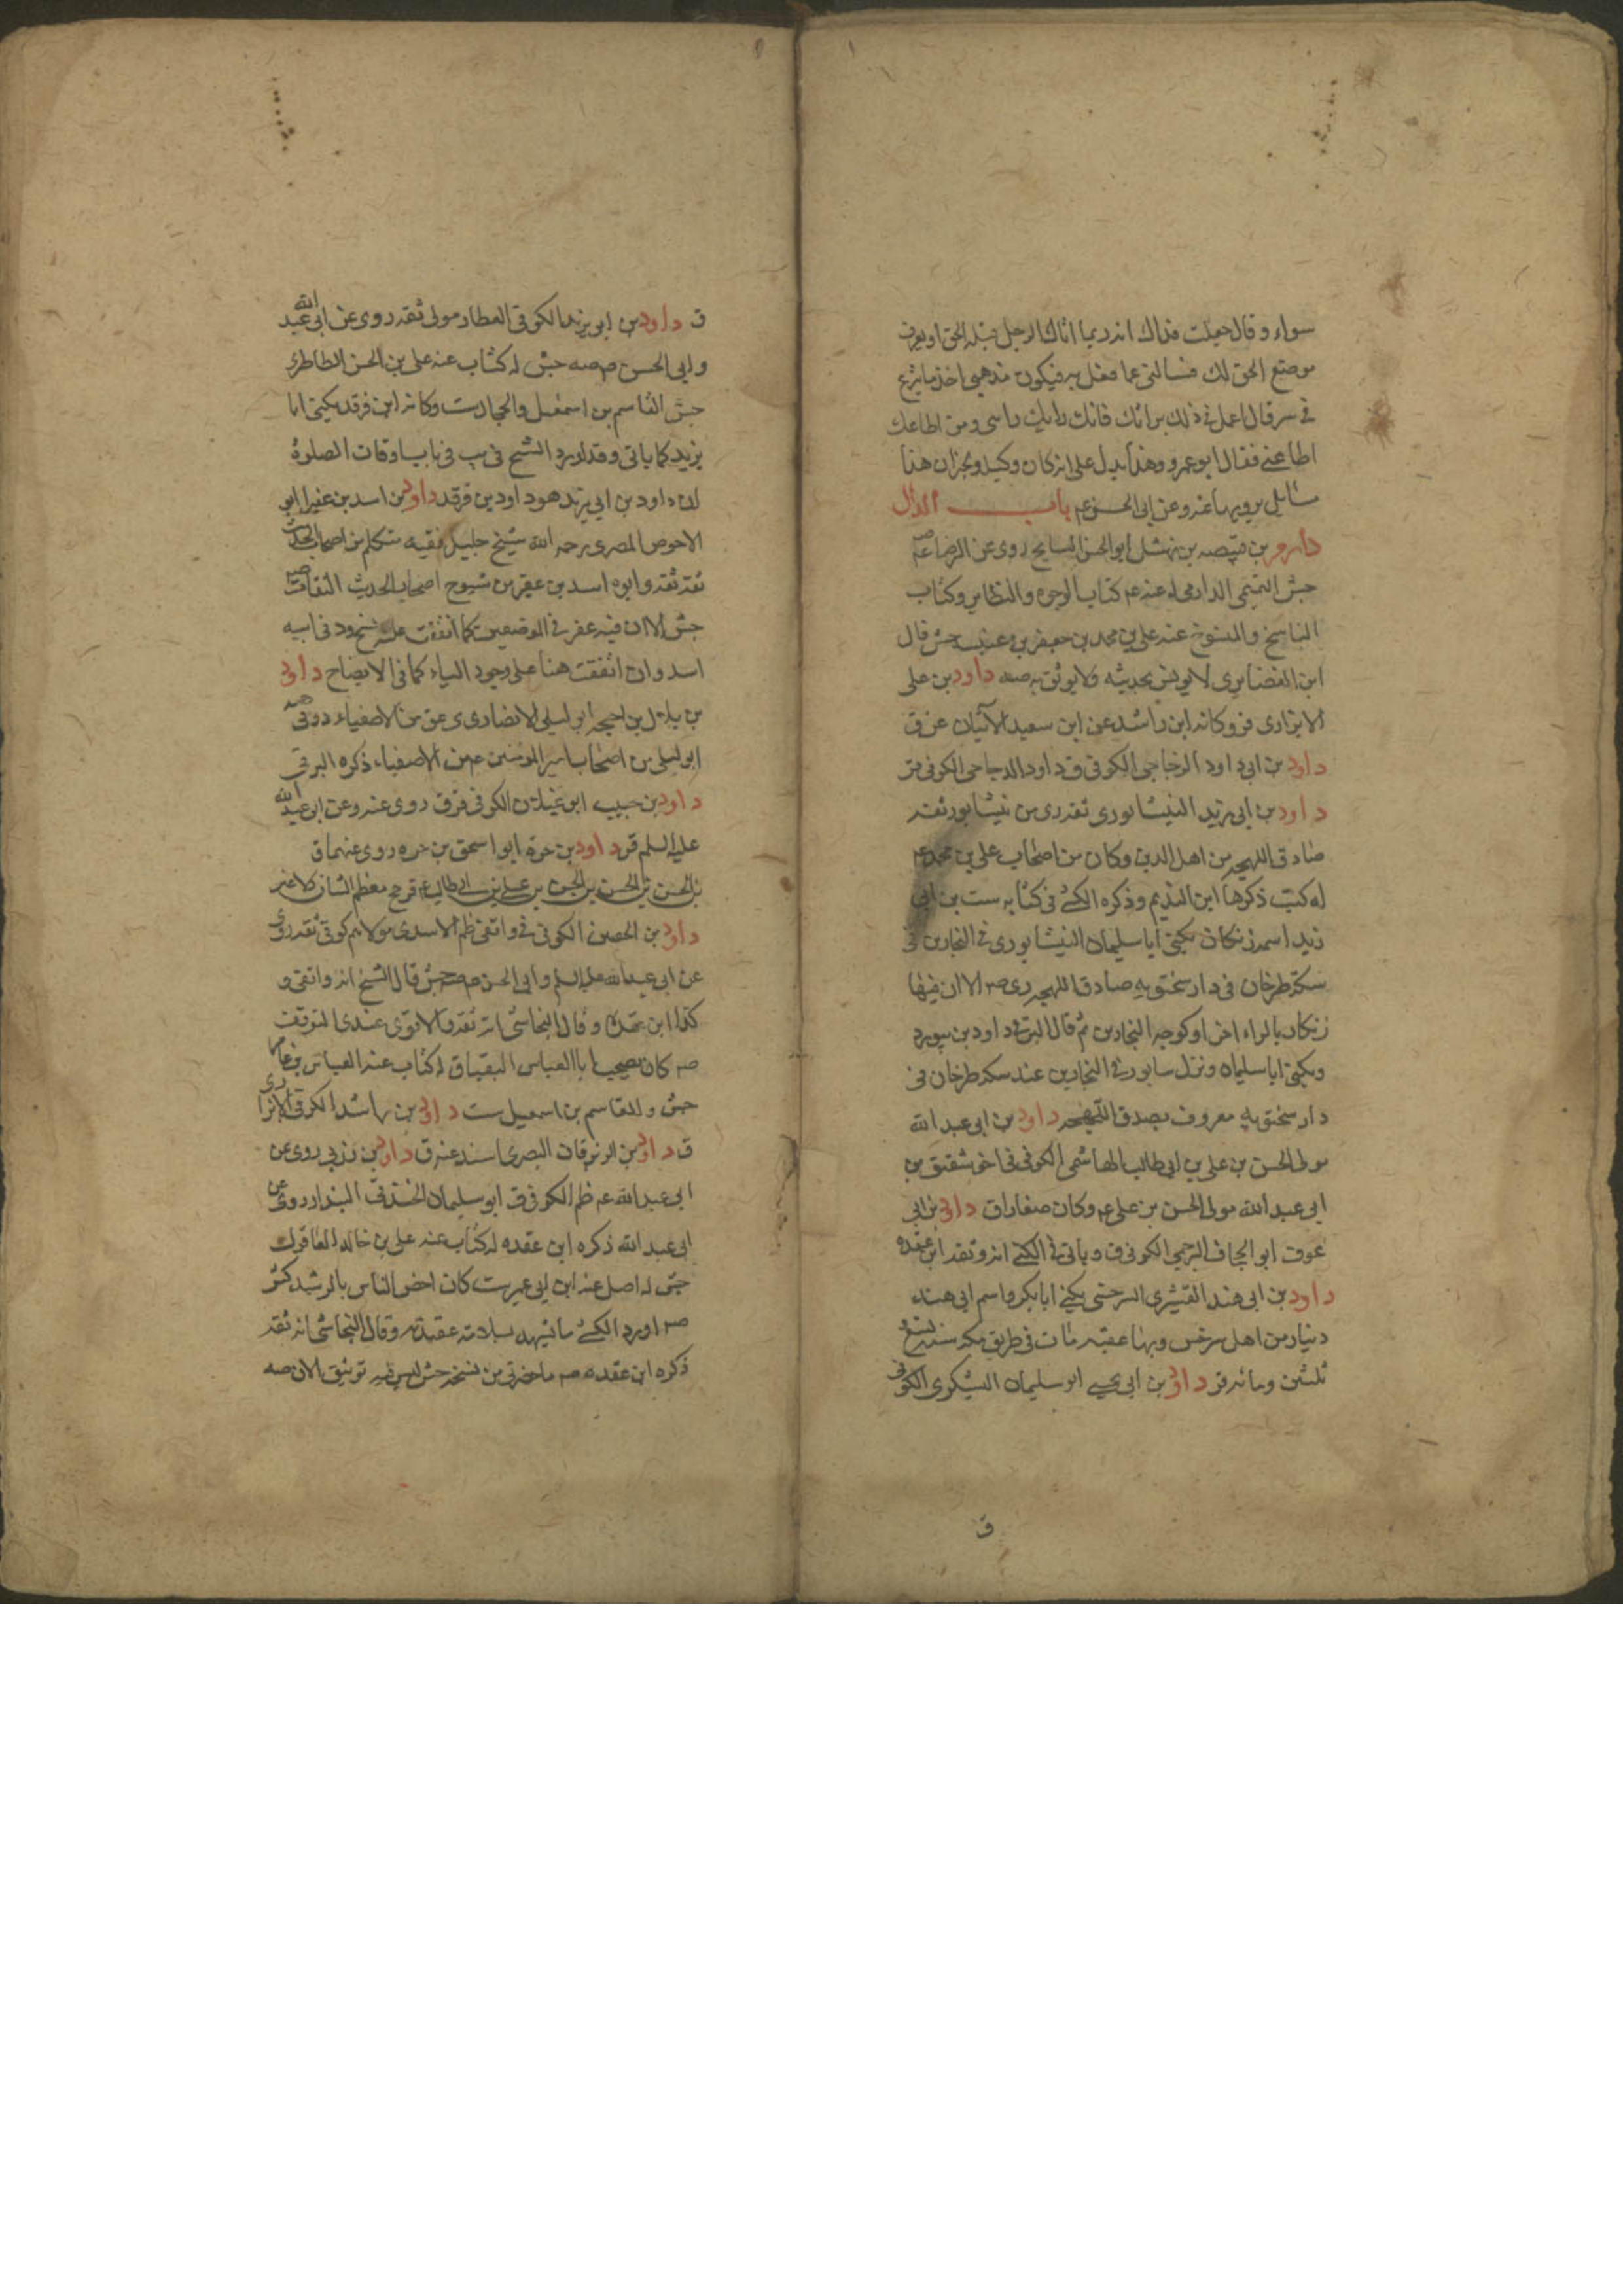 سواء وقال جعلت فداك انه ربما اتاك الرجل قبله الحق او يعرف
موضع الحق لك فسالنى عما فعل به فيكون مذهبى اخذ ما يشرع
فى سر قال اعمل فى ذلك برائك فانك رايك راسى ومن اطاعك
اطاعنى فقال ابو عمرو وهذا يدل على انه كان وكيل وبجزان هذا
مسائل يرويها عنه وعن ابى الحسن عم باب الدال
دارم بن قبيصه بن نهشل ابو الحسن السايح روى عن الرضا عم صه
جش التميمى الدارمى له عنه عم كتاب الوجوه والنظاير وكتاب
الناسخ والمنسوخ عنه على بن محمد بن جعفر بن عنبسه جش قال
ابن الغضايرى لا يونس بحديثه ولا يوثق به صه داود بن على
الابزارى قر وكانه ابن راشد عن ابن سعيد الآتيان عن ق
داود بن ابى داود الزجاجى الكوفى ق داود الدجاجى الكوفى قر
داود بن ابى زيد النيشابورى ثقه رى من نيشابور ثقه
صادق اللهجه من اهل الدين وكان من اصحاب على بن محمد عم
له كتب ذكرها ابن النديم وذكره الكشى فى كتابه ست بن ابى
زيد اسمه زنكان يكنى ابا سليمان النيشابورى فى النجارين فى
سكه طرخان فى دار سختويه صادق اللهجه رى صه الا ان فيها
زنكار بالراء اخرا وكوجه النجارين ثم قال البرقى داود بن بيورد
ويكنى ابا سليمان ونزل سابور فى النجارين عند سكه طرخان فى
دار سختويه معروف بصدق اللهجه داود بن ابى عبد الله
مولى الحسن بن على بن ابى طالب الهاشمى الكوفى ق اخو شقيق بن
ابى عبد الله مولى الحسن بن على عم وكان صفارا ق داود بن ابى
عوف ابو الجحاف البرجمى الكوفى ق وياتى فى الكنى انه وثقه ابن عقده
داود بن ابى هند القشيرى السرخسى يكنى ابا بكر واسم ابى هند
دينار من اهل سرخس وبها عقبه مات فى طريق مكه سنه تسع و
ثلثين ومائه قر داود بن ابى يحيى ابو سليمان اليشكرى الكوفى
ق
ق داود بن ابو يزيد الكوفى العطار مولى ثقه روى عن ابى عبد الله
وابى الحسن م صه جش له كتاب عنه على بن الحسن الطاطرى
جش القاسم بن اسمعيل والحجال ست وكانه ابن فرقد يكنى ابا
يزيد كما ياتى وقد اورد الشيخ فى يب فى باب اوقات الصلوة
ان داود بن ابى يزيد هو داود بن فرقد داود بن اسد بن عفير ابو
الاحوص المصرى رحمه الله شيخ جليل فقيه متكلم من اصحاب الحديث
ثقه ثقه وابوه اسد بن عفير من شيوخ اصحاب الحديث الثقات صه
جش الا ان فيه عفر فى الموضعين كما اتفقت عليه نسخ ود فى ابيه
اسد وان اتفقت هنا على وجود الياء كما فى الايضاح داود
بن بلال بن احيحه ابو ليلى الانصارى ى عق من الاصفياء د وفى صه
ابو ليلى من اصحاب امير المومنين عم من الاصفياء ذكره البرقى
داود بن حبيب ابو غيلان الكوفى قر ق روى عنه وعن ابى عبد الله
عليه السلم قر داود بن حره ابو اسحق بن حره روى عنهما ق
بن الحسن بن الحسن بن الحسن بن على بن ابى طالب عم قر ح معظم الشان لا غير
داود بن الحصين الكوفى ق واقفى ظم الاسدى مولاهم كوفى ثقه روى
عن ابى عبد الله عليه السلم وابى الحسن م صه جش قال الشيخ انه واقفى و
كذا ابن عقده وقال النجاشى انه ثقه والاقوى عندى التوقف
صه كان يصحب ابا العباس البقباق له كتاب عنه العباس بن عامر
جش والقاسم بن اسمعيل ست داود بن راشد الكوفى الابزارى
ق داود بن الزبرقان البصرى اسند عنه ق داود بن زربى روى عن
ابى عبد الله عم ظم الكوفى ق ابو سليمان الخندقى البندار روى عن
ابى عبد الله ذكره ابن عقده له كتاب عنه على بن خالد العاقولى
جش له اصل عنه ابن ابى عمير ست كان اخص الناس بالرشيد كش
صه اورد الكشى ما يشهد بسلامه عقيدته وقال النجاشى انه ثقه
ذكره ابن عقده صه ما حضرنى من نسخه جش ليس فيه توثيق الا ان صه